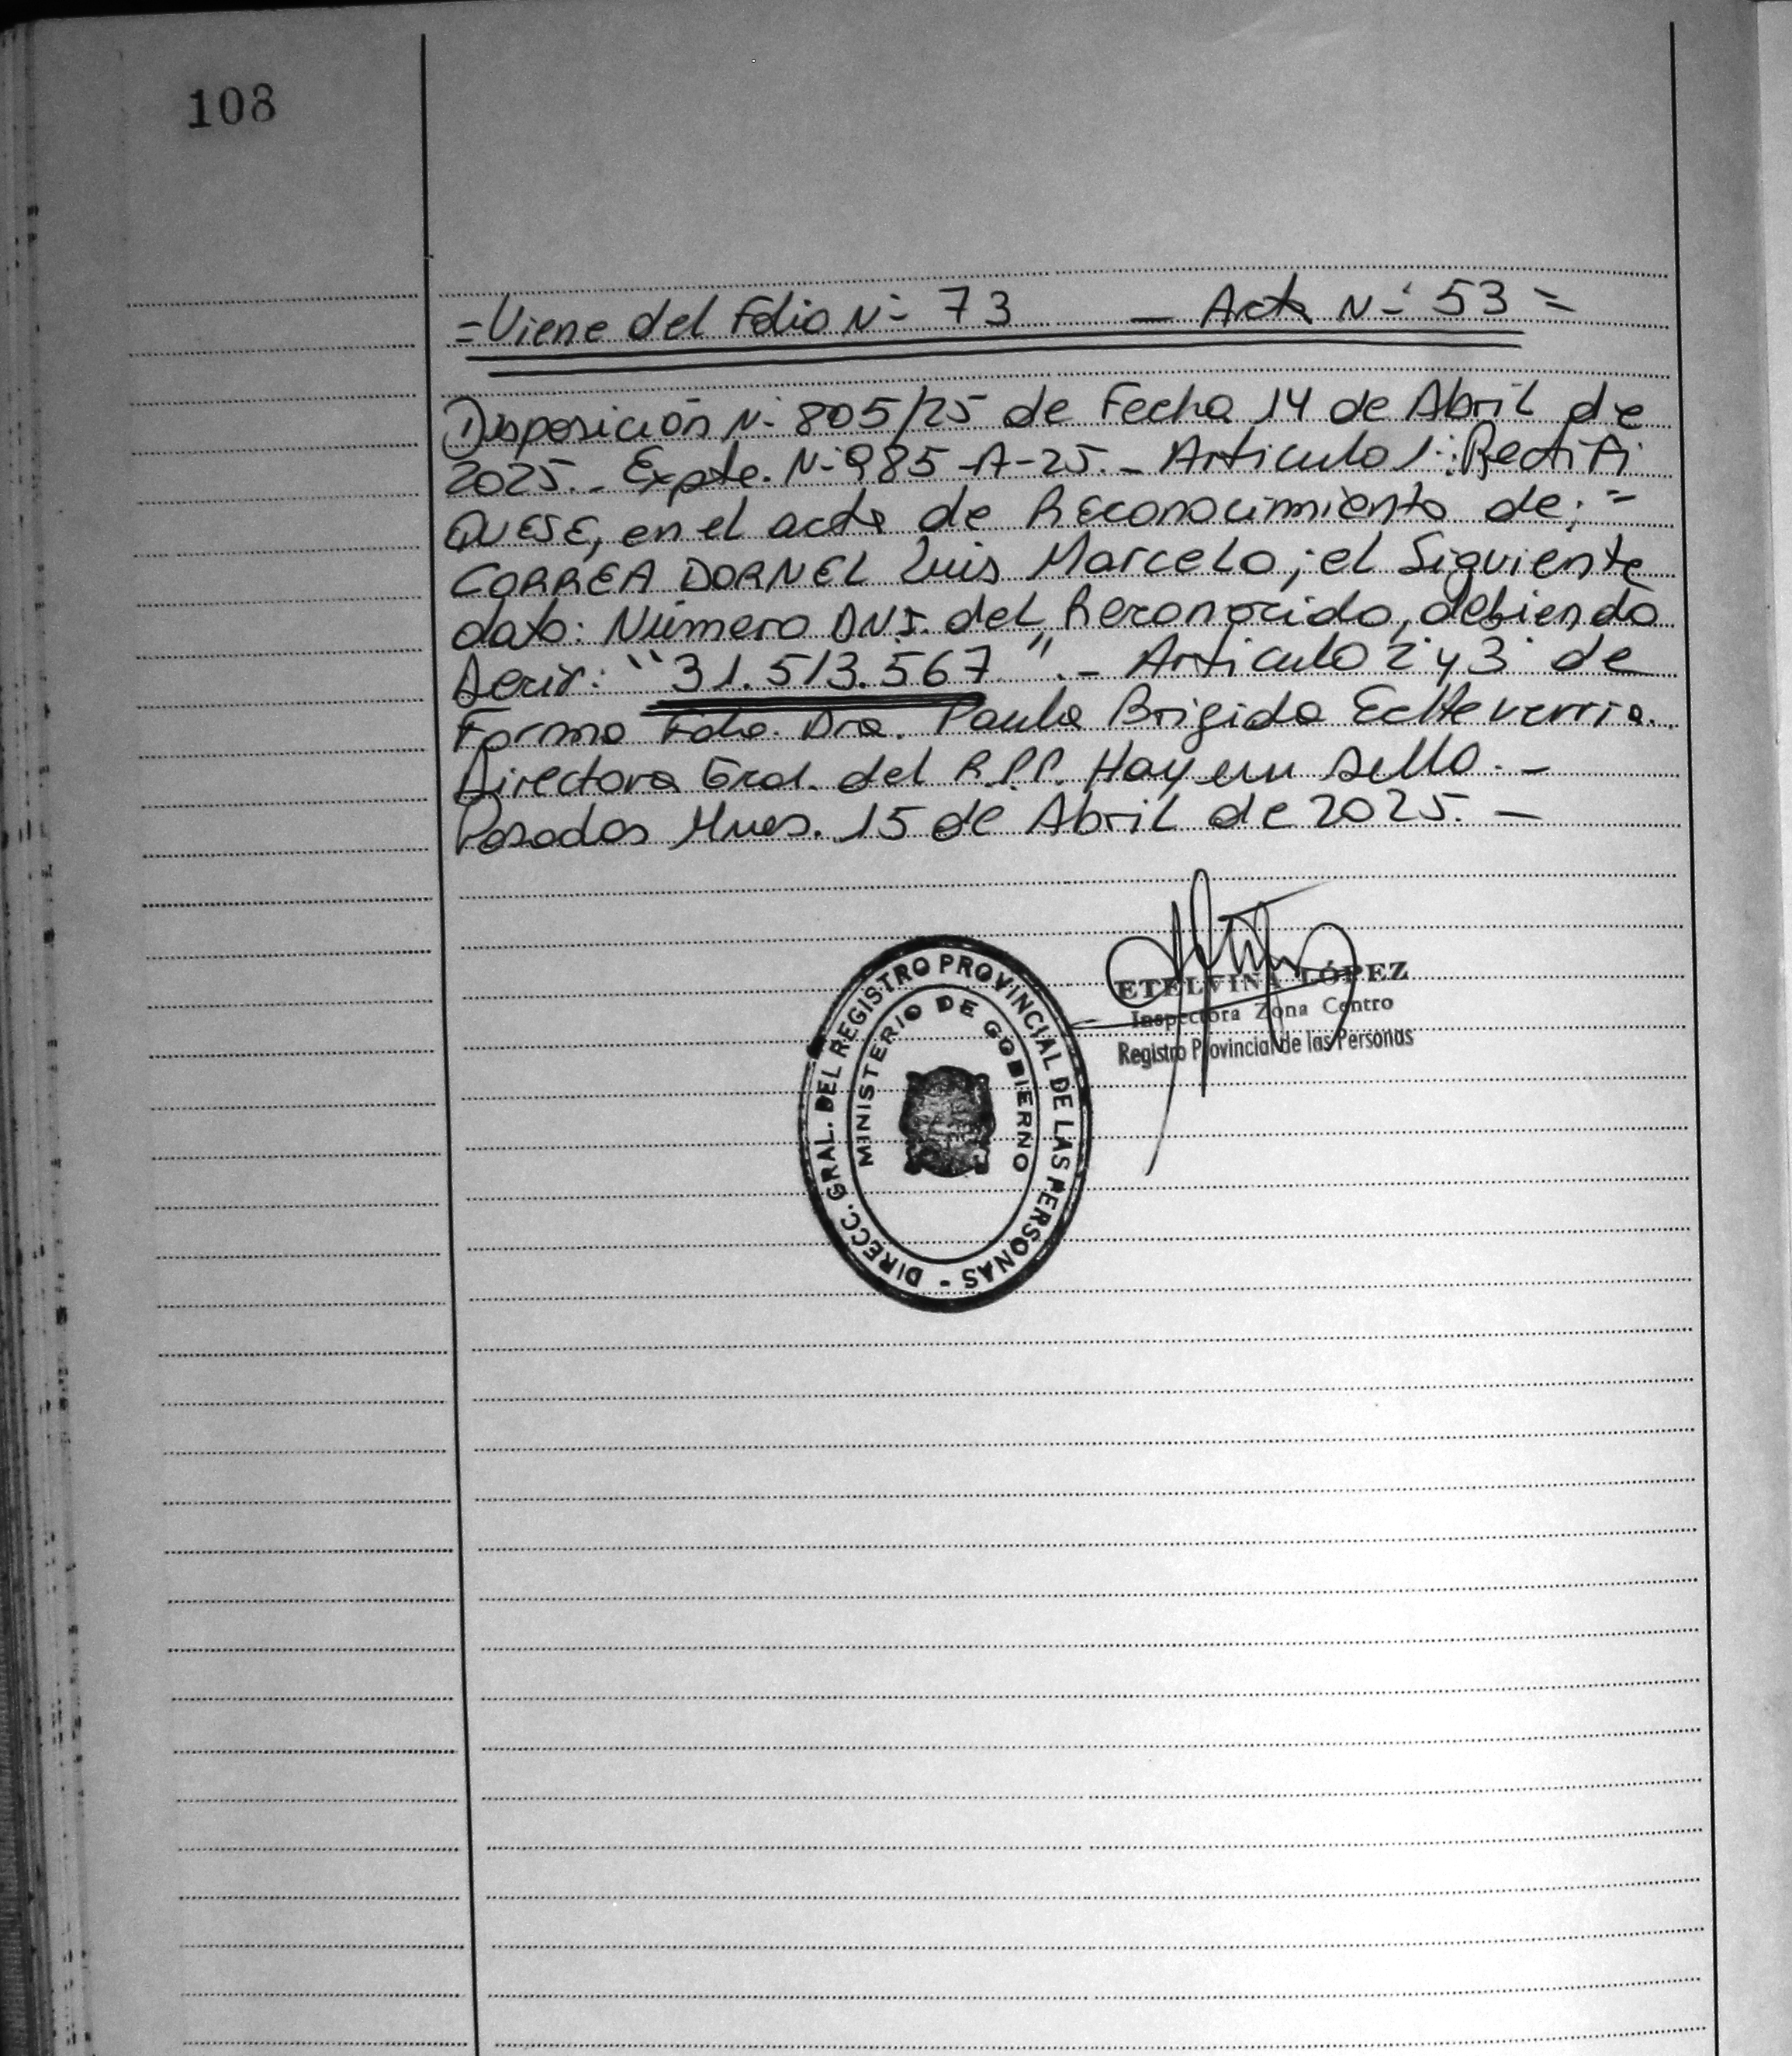 108
=Viene del Folio N- 73 — Acta N- 53 =
Disposición N- 805/25 de Fecha 14 de Abril de
2025.- Expte. N-985-A-25.- Articulo 1-: Rectifi
QUESE, en el acta de Reconocimiento de: =
CORREA DORNEL Luis Marcelo; el Siguiente
dato: Número DNI. del Reconocido, debiendo
Decir: "31.513.567".- Articulo 2° y 3° de
Forma Fdo. Dra. Paula Brigida Echeverria.
Directora Gral. del R.P.P. Hay un sello.-
Posadas Mnes. 15 de Abril de 2025.—
ETELVINA LÓPEZ
Inspectora Zona Centro
Registro Provincial de las Personas
DIRECC. GRAL. DEL REGISTRO PROVINCIAL DE LAS PERSONAS -
MINISTERIO DE GOBIERNO